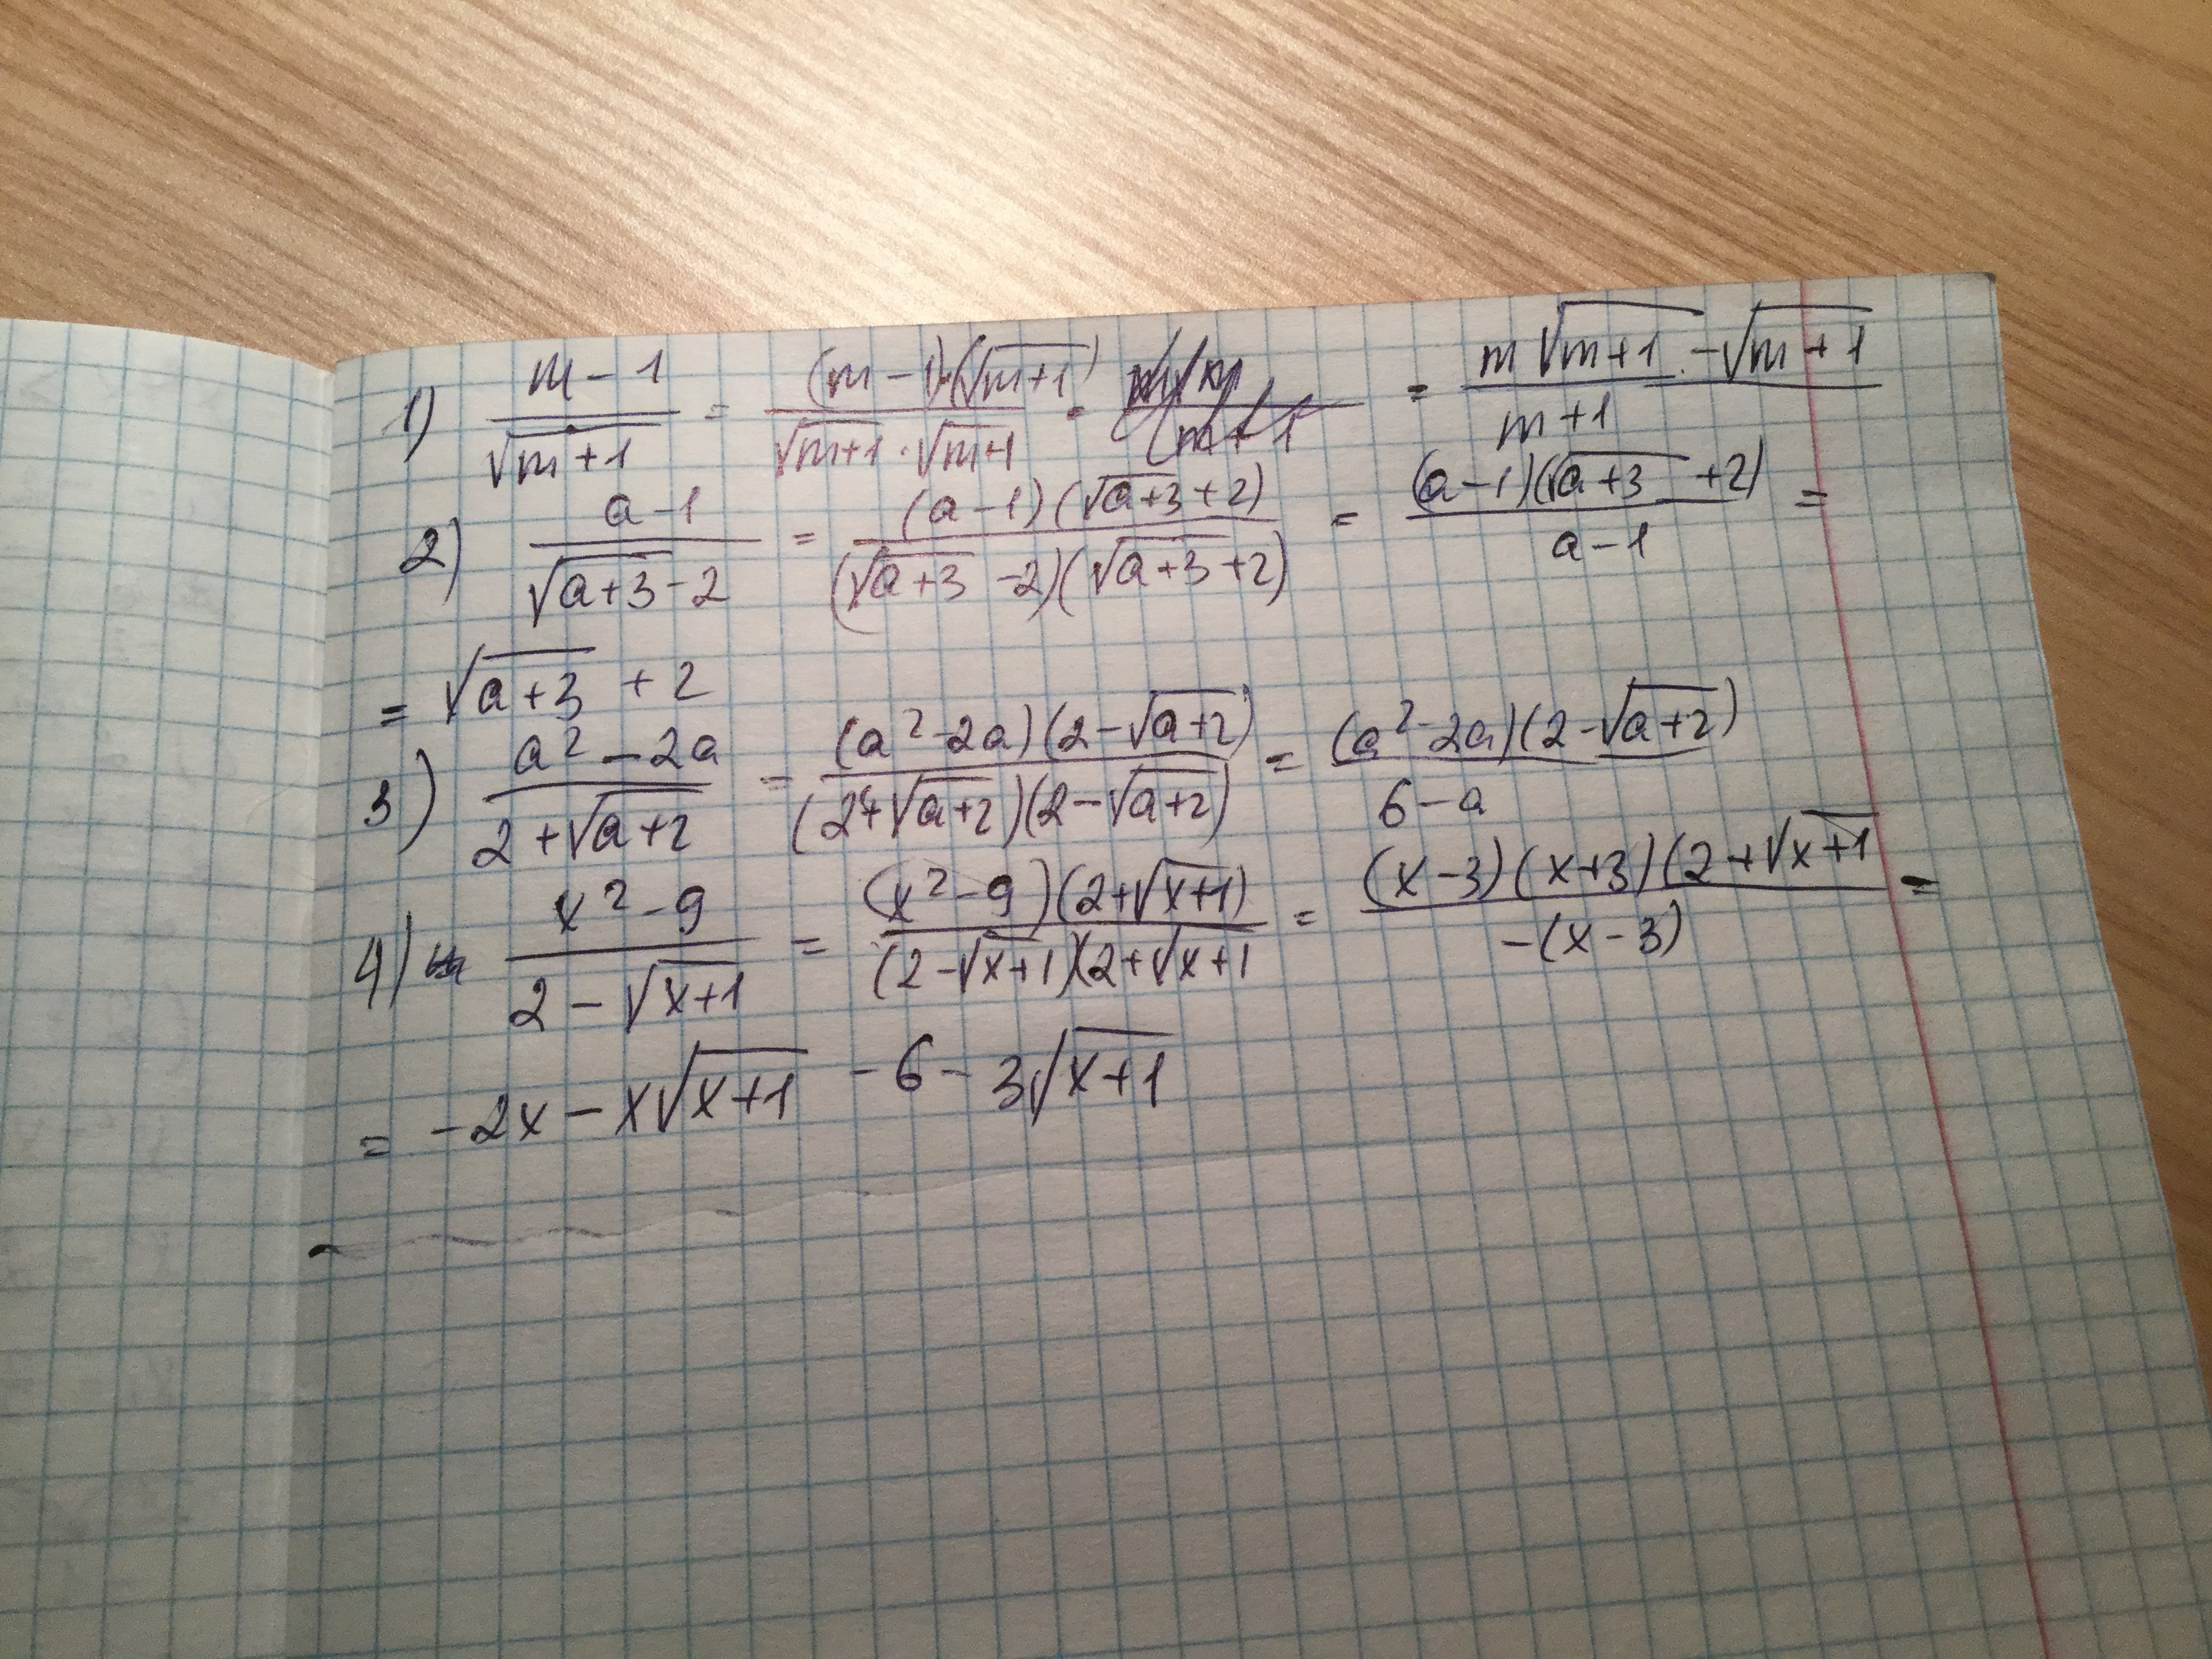 1) (m-1)/(√(m+1)) = ((m-1)·(√(m+1)))/(√(m+1)·√(m+1)) = (m√(m+1) - √(m+1))/(m+1)
2) (a-1)/(√(a+3)-2) = ((a-1)(√(a+3)+2))/((√(a+3)-2)(√(a+3)+2)) = ((a-1)(√(a+3)+2))/(a-1) =
= √(a+3) + 2
3) (a²-2a)/(2+√(a+2)) = ((a²-2a)(2-√(a+2)))/((2+√(a+2))(2-√(a+2))) = ((a²-2a)(2-√(a+2)))/(6-a)
4) (x²-9)/(2-√(x+1)) = ((x²-9)(2+√(x+1)))/((2-√(x+1))(2+√(x+1)) = ((x-3)(x+3)(2+√(x+1))/(-(x-3)) =
= -2x - x√(x+1) - 6 - 3√(x+1)